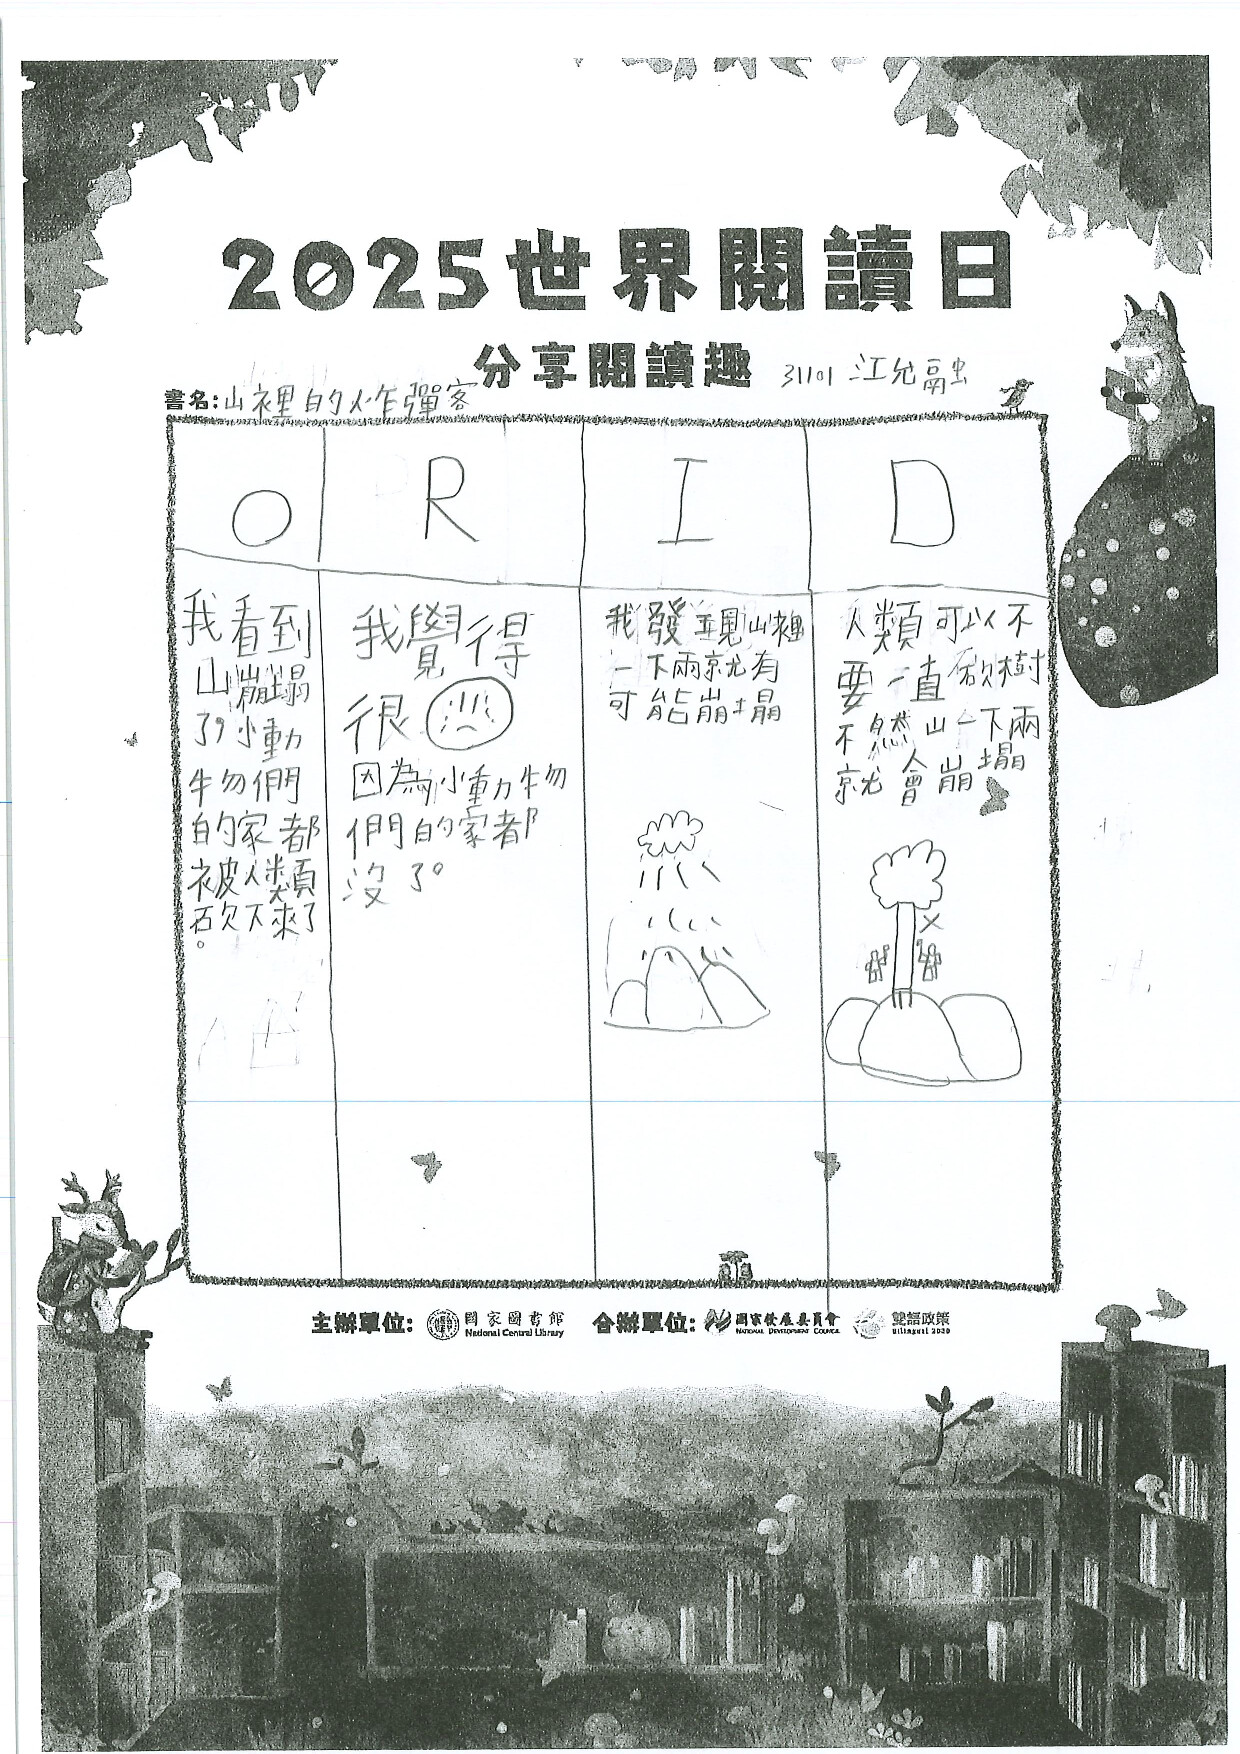 2025世界閱讀日
分享閱讀趣
31101 江允融
書名:山裡的炸彈客
O R I D
我看到
山崩塌
了,小動
物們
的家都
被人類
砍下來了
。
我覺得
很
因為小動物
們的家都
沒了。
我發現山裡
一下雨就有
可能崩塌
人類可以不
要一直砍樹
不然山一下雨
就會崩塌
主辦單位: 國家圖書館 National Central Library 合辦單位: 國家發展委員會 NATIONAL DEVELOPMENT COUNCIL 雙語政策 Bilingual 2030